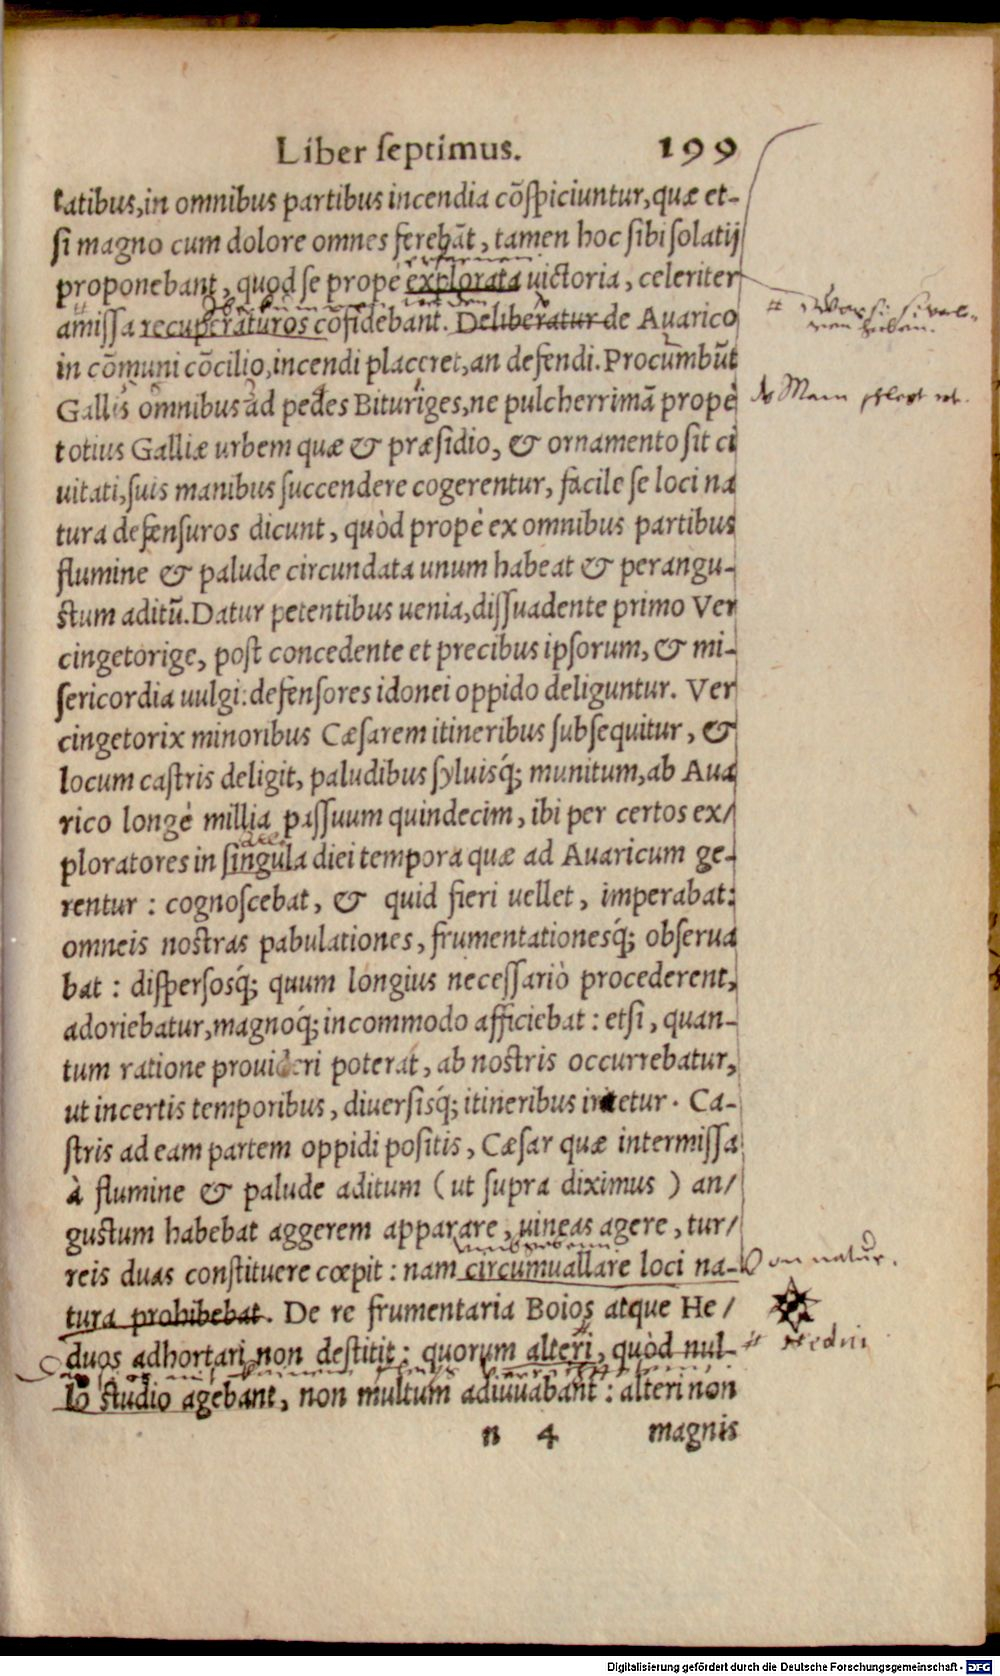 Liber ſeptimus. 199
tatibus, in omnibus partibus incendia cōſpiciuntur, quæ et-
ſi magno cum dolore omnes ferebāt, tamen hoc ſibi ſolatij
proponebant, quod ſe propè explorata uictoria, celeriter
amiſſa recuperaturos cōfidebant. Deliberatur de Auarico
in cōmuni cōcilio, incendi placeret, an defendi. Procumbūt
Gallis omnibus ad pedes Bituriges, ne pulcherrimā propè
totius Galliæ urbem quæ & præſidio, & ornamento ſit ci
uitati, ſuis manibus ſuccendere cogerentur, facile ſe loci na
tura defenſuros dicunt, quòd propè ex omnibus partibus
flumine & palude circundata unum habeat & perangu-
ſtum aditū. Datur petentibus uenia, diſſuadente primo Ver
cingetorige, poſt concedente et precibus ipſorum, & mi-
ſericordia uulgi: defenſores idonei oppido deliguntur. Ver
cingetorix minoribus Cæſarem itineribus ſubſequitur, &
locum caſtris deligit, paludibus ſyluisq́; munitum, ab Aua
rico longè millia paſſuum quindecim, ibi per certos ex/
ploratores in ſingula diei tempora quæ ad Auaricum ge-
rentur : cognoſcebat, & quid fieri uellet, imperabat:
omneis noſtras pabulationes, frumentationesq́; obſerua
bat : diſperſosq́; quum longius neceſſariò procederent,
adoriebatur, magnoq́; incommodo afficiebat : etſi, quan-
tum ratione prouideri poterat, ab noſtris occurrebatur,
ut incertis temporibus, diuerſisq́; itineribus iretur. Ca-
ſtris ad eam partem oppidi poſitis, Cæſar quæ intermiſſa
à flumine & palude aditum ( ut ſupra diximus ) an/
guſtum habebat aggerem apparare, uineas agere, tur/
reis duas conſtituere cœpit : nam circumuallare loci na-
Von natur.
tura prohibebat. De re frumentaria Boios atque He/
duos adhortari non deſtitit: quorum alteri, quòd nul-
Hedui
lo ſtudio agebant, non multum adiuuabant : alteri non
n 4 magnis
Digitalisierung gefördert durch die Deutsche Forschungsgemeinschaft - DFG